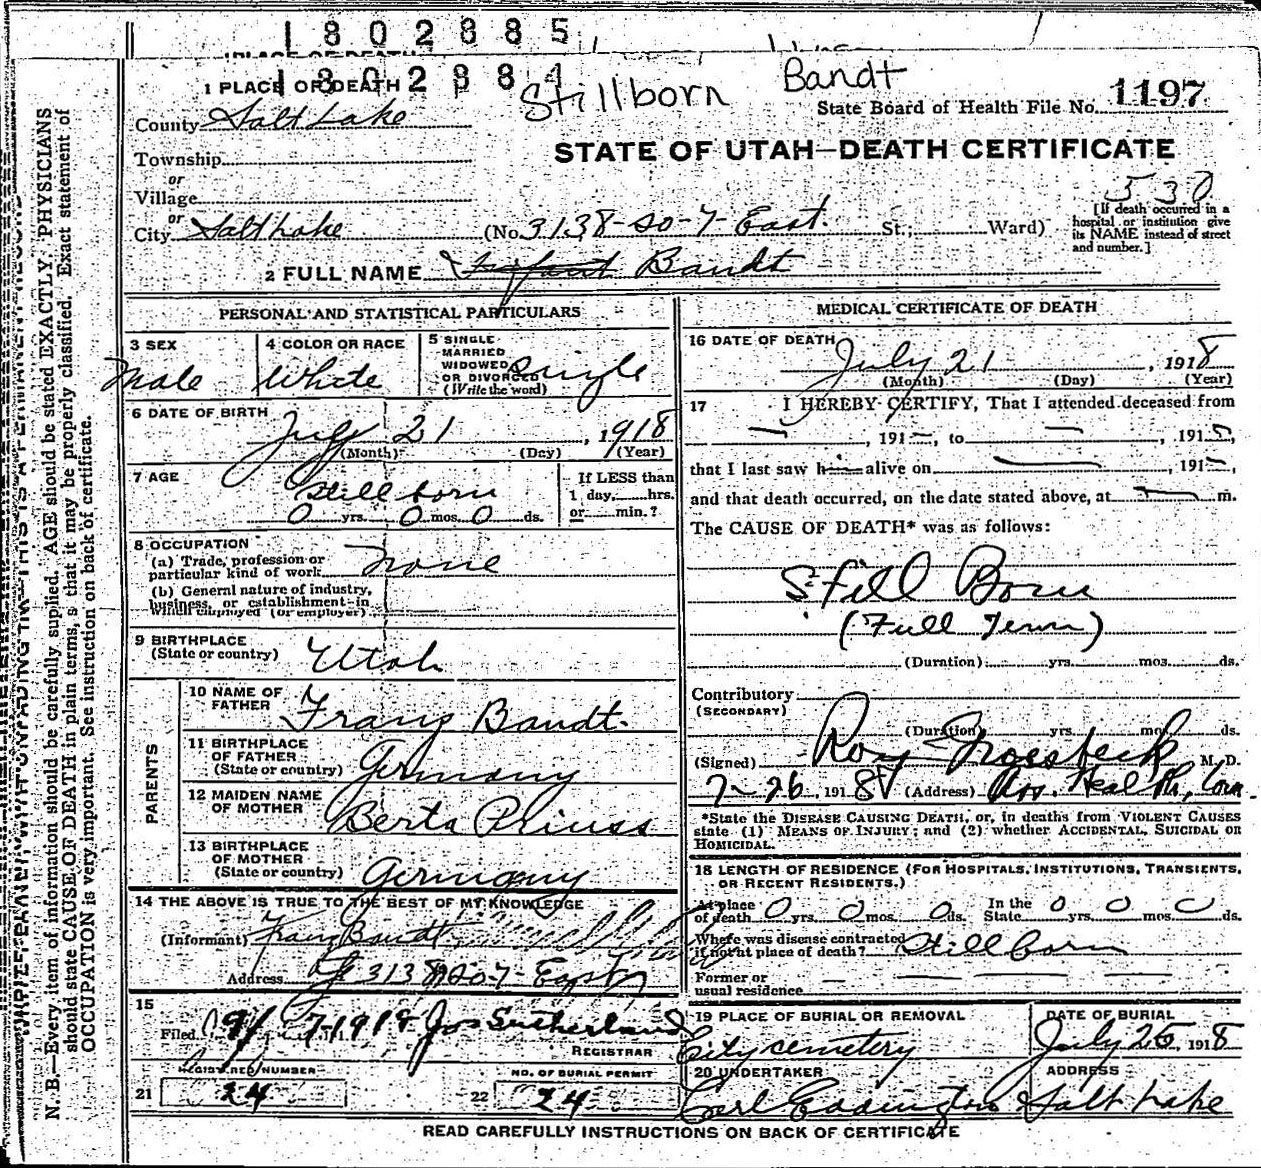 1802885
1802884
1 PLACE OF DEATH
Stillborn Bandt
State Board of Health File No. 1197
County Salt Lake
STATE OF UTAH—DEATH CERTIFICATE
Township
or
Village
or
City Salt Lake (No. 3138-so-7-East. St.; Ward)
530
[If death occurred in a
hospital or institution give
its NAME instead of street
and number.]
2 FULL NAME Infant Bandt
PERSONAL AND STATISTICAL PARTICULARS
3 SEX
Male
4 COLOR OR RACE
White
5 SINGLE
MARRIED
WIDOWED
OR DIVORCED
(Write the word)
Single
6 DATE OF BIRTH
July 21, 1918
(Month) (Day) (Year)
7 AGE
Still born
0 yrs. 0 mos. 0 ds.
If LESS than
1 day, hrs.
or min.?
8 OCCUPATION
(a) Trade, profession or
particular kind of work None
(b) General nature of industry,
business, or establishment in
which employed (or employer)
9 BIRTHPLACE
(State or country) Utah
PARENTS
10 NAME OF
FATHER Franz Bandt.
11 BIRTHPLACE
OF FATHER
(State or country) Germany
12 MAIDEN NAME
OF MOTHER Berta Priuss
13 BIRTHPLACE
OF MOTHER
(State or country) Germany
14 THE ABOVE IS TRUE TO THE BEST OF MY KNOWLEDGE
(Informant) Franz Bandt
Address 3138 so 7-East
15
Filed 1918 Jos Sutherland
REGISTRAR
REGISTERED NUMBER
21 24
NO. OF BURIAL PERMIT
22 24
MEDICAL CERTIFICATE OF DEATH
16 DATE OF DEATH
July 21, 1918
(Month) (Day) (Year)
17 I HEREBY CERTIFY, That I attended deceased from
—, 191—, to —, 191—,
that I last saw h— alive on —, 191—,
and that death occurred, on the date stated above, at — m.
The CAUSE OF DEATH* was as follows:
Still Born
(Full Term)
(Duration) yrs. mos. ds.
Contributory
(SECONDARY)
(Duration) yrs. mos. ds.
(Signed) Roy Groesbeck M. D.
7-26, 1918 (Address) Ass. Health, Com.
*State the DISEASE CAUSING DEATH, or, in deaths from VIOLENT CAUSES
state (1) MEANS OF INJURY; and (2) whether ACCIDENTAL, SUICIDAL OR
HOMICIDAL.
18 LENGTH OF RESIDENCE (FOR HOSPITALS, INSTITUTIONS, TRANSIENTS,
OR RECENT RESIDENTS.)
At place
of death 0 yrs. 0 mos. 0 ds.
In the
State 0 yrs. 0 mos. 0 ds.
Where was disease contracted
if not at place of death? Still born
Former or
usual residence
19 PLACE OF BURIAL OR REMOVAL
City cemetery
DATE OF BURIAL
July 26, 1918
20 UNDERTAKER
Carl Eddington
ADDRESS
Salt Lake
READ CAREFULLY INSTRUCTIONS ON BACK OF CERTIFICATE
N. B.—Every item of information should be carefully supplied. AGE should be stated EXACTLY. PHYSICIANS
should state CAUSE OF DEATH in plain terms, so that it may be properly classified. Exact statement of
OCCUPATION is very important. See instruction on back of certificate.